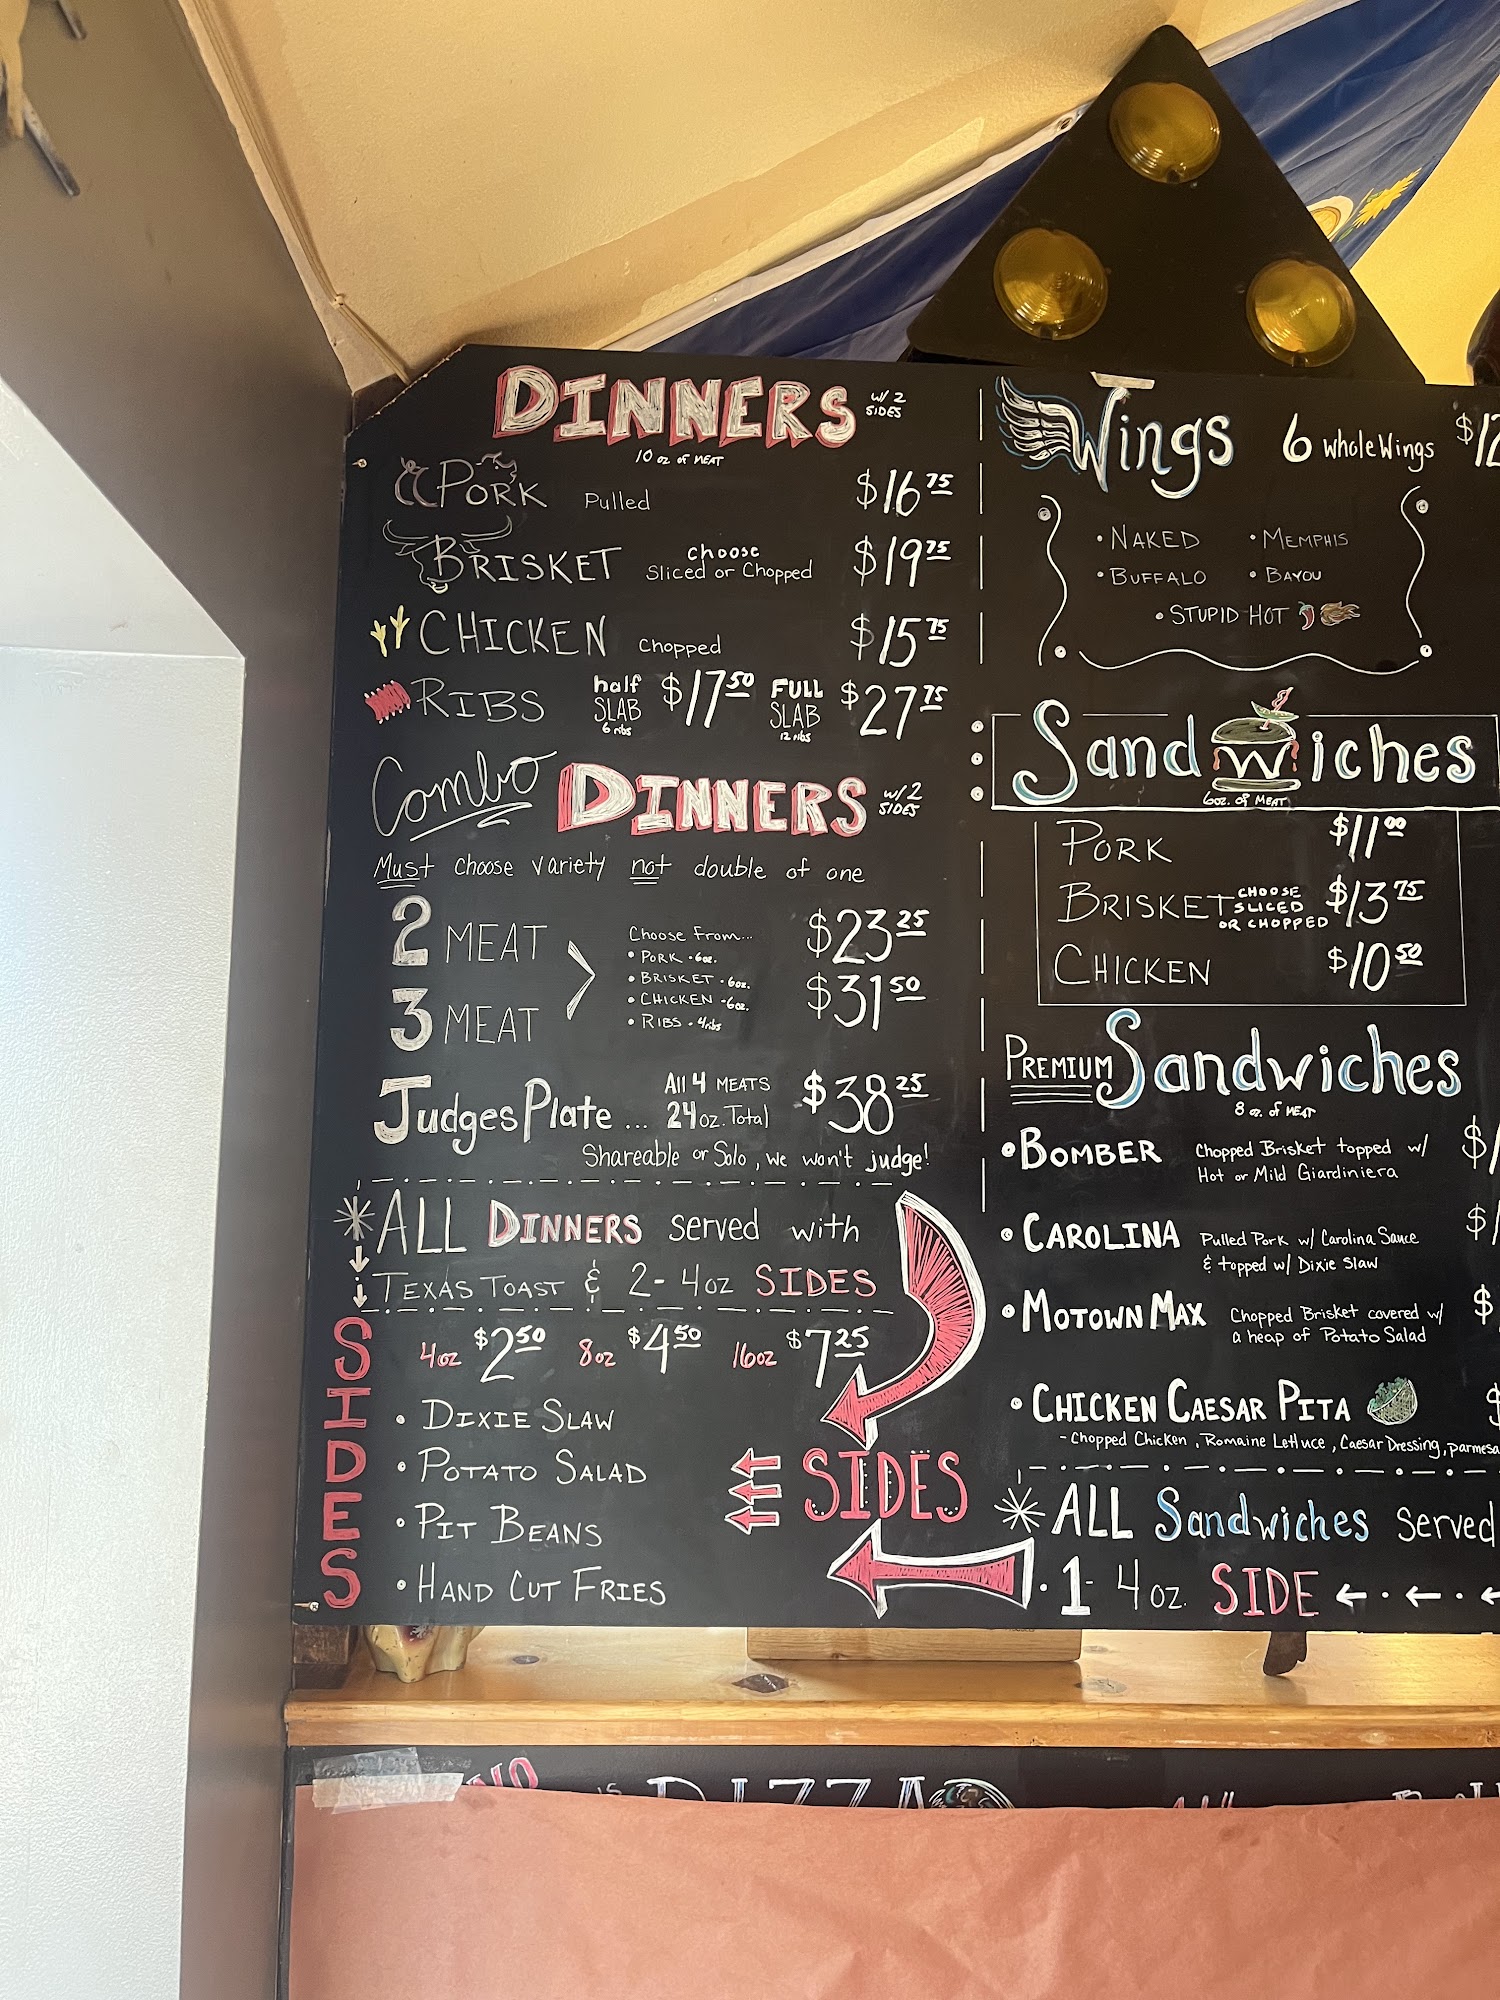 DINNERS w/ 2 SIDES
10 oz of MEAT
PORK Pulled $16.75
BRISKET choose Sliced or Chopped $19.75
CHICKEN Chopped $15.75
RIBS half SLAB 6 ribs $17.50 FULL SLAB 12 ribs $27.75
Combo DINNERS w/2 SIDES
Must choose variety not double of one
2 MEAT $23.25
3 MEAT $31.50
Choose From...
• PORK - 6oz.
• BRISKET - 6oz.
• CHICKEN - 6oz.
• RIBS - 4ribs
Judges Plate ... All 4 MEATS 24oz. Total $38.25
Shareable or Solo, we won't judge!
*ALL DINNERS served with
TEXAS TOAST & 2- 4oz SIDES
SIDES
4oz $2.50 8oz $4.50 16oz $7.25
• DIXIE SLAW
• POTATO SALAD
• PIT BEANS
• HAND CUT FRIES
SIDES
Wings 6 whole Wings
• NAKED • MEMPHIS
• BUFFALO • BAYOU
• STUPID HOT
Sandwiches
6oz. of MEAT
PORK $11.00
BRISKET CHOOSE SLICED OR CHOPPED $13.75
CHICKEN $10.50
PREMIUM Sandwiches
8 oz. of MEAT
• BOMBER Chopped Brisket topped w/
Hot or Mild Giardiniera
• CAROLINA Pulled Pork w/ Carolina Sauce
& topped w/ Dixie Slaw
• MOTOWN MAX Chopped Brisket covered w/
a heap of Potato Salad
• CHICKEN CAESAR PITA
- Chopped Chicken, Romaine Lettuce, Caesar Dressing, parmesa
*ALL Sandwiches served
• 1- 4oz. SIDE
PIZZA